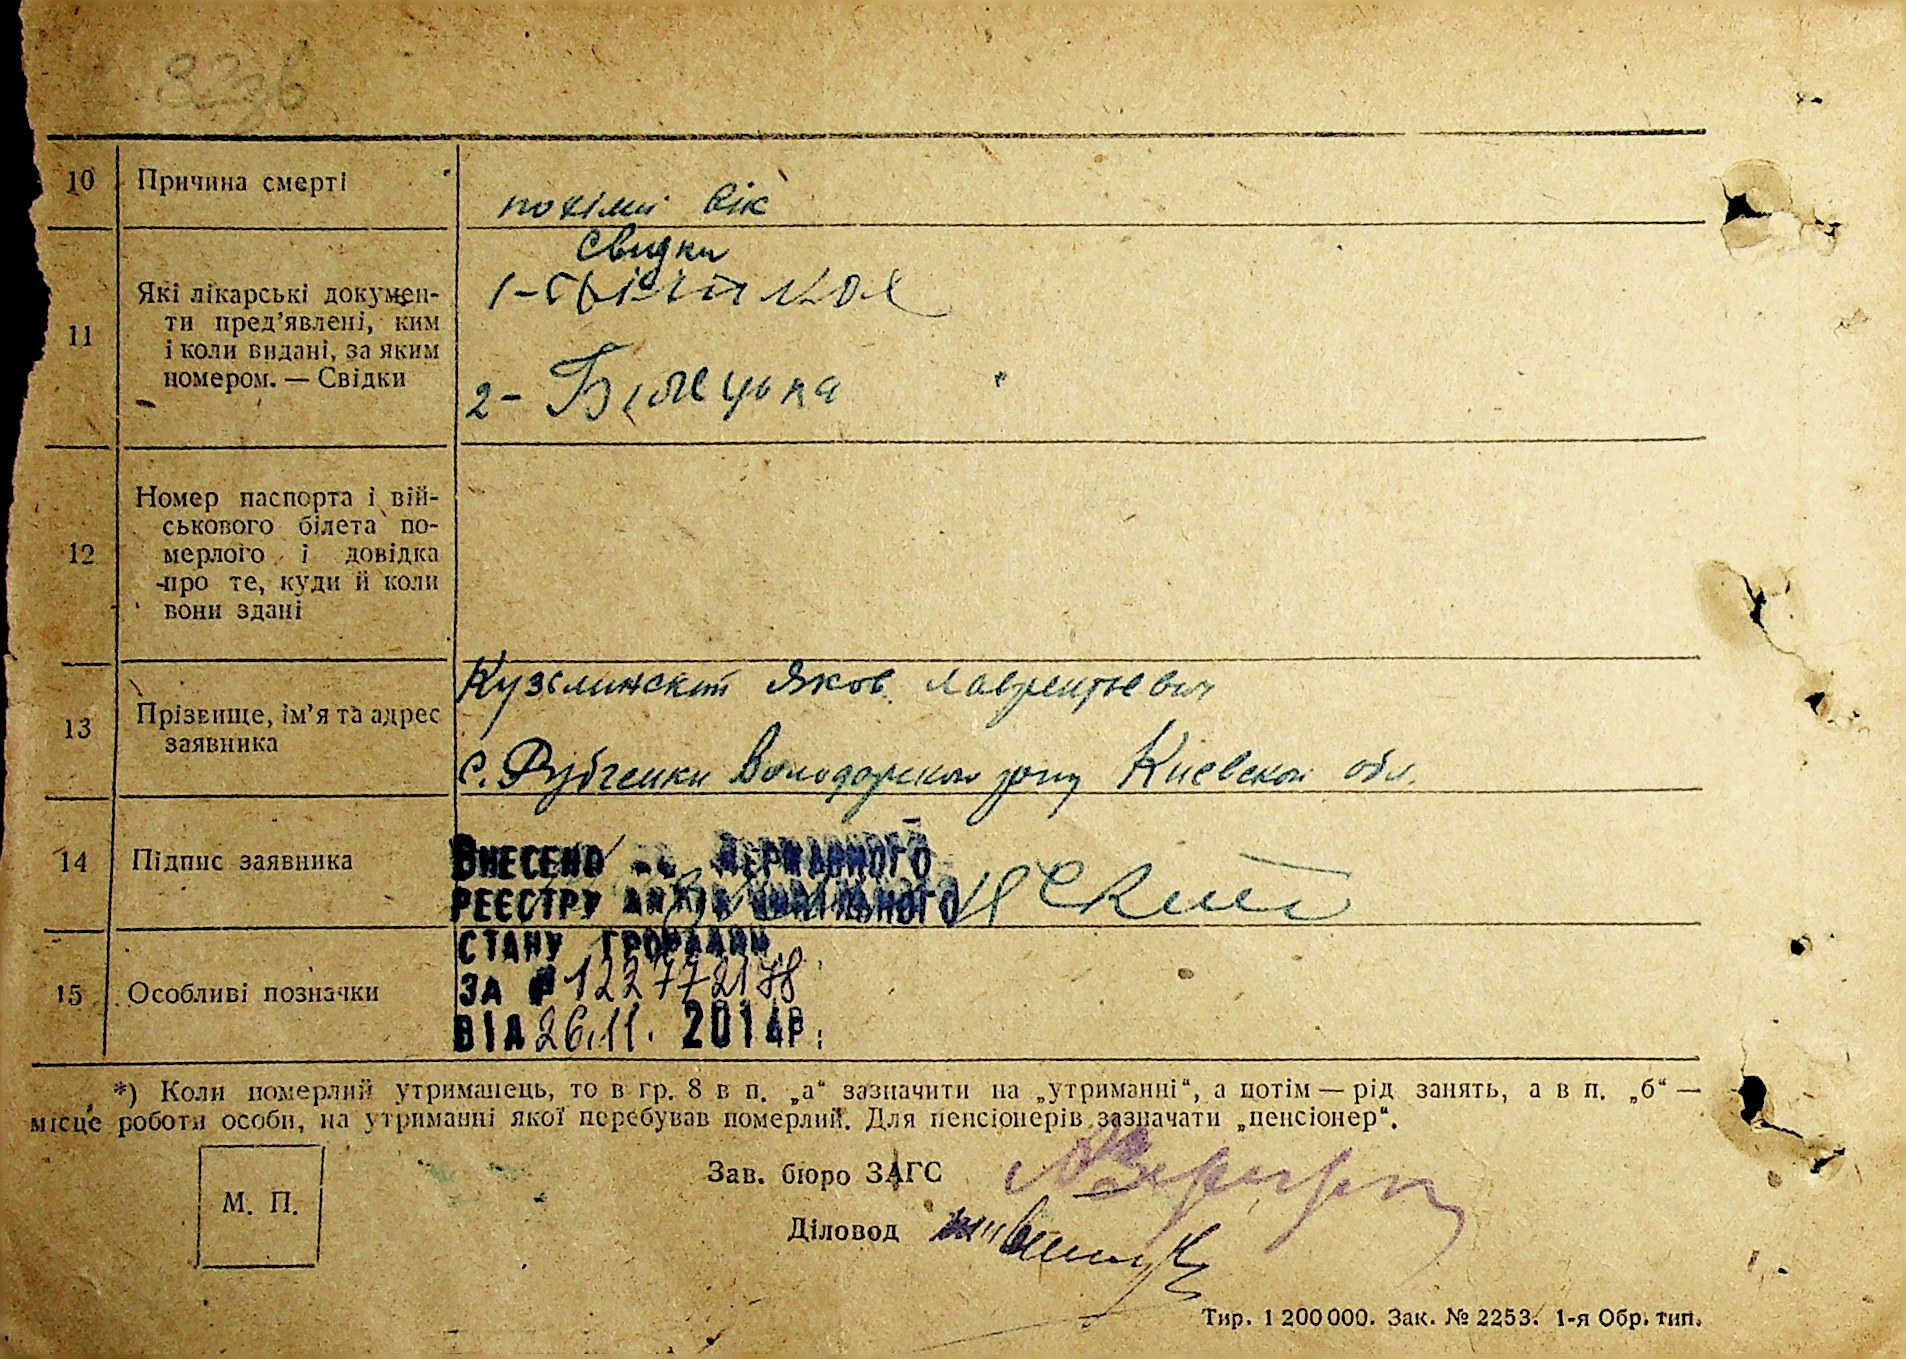 10 Причина смерті
похілий вік
свидки
11 Які лікарські докумен-
ти пред’явлені, ким
і коли видані, за яким
номером. — Свідки
1-
2- Білецька
12 Номер паспорта і вій-
ськового білета по-
мерлого і довідка
про те, куди й коли
вони здані
13 Прізвище, ім’я та адрес
заявника
Кузьминский Яков Лаврентьевич
с. Рубченки Володарского р-ну Киевской обл.
14 Підпис заявника
ВНЕСЕНО ДО ДЕРЖАВНОГО
РЕЄСТРУ АКТІВ ЦИВІЛЬНОГО
СТАНУ ГРОМАДЯН
15 Особливі позначки
ЗА № 122772178
ВІД 26.11. 2014Р.
*) Коли померлий утриманець, то в гр. 8 в п. „а“ зазначити на „утриманні“, а потім — рід занять, а в п. „б“ —
місце роботи особи, на утриманні якої перебував померлий. Для пенсіонерів зазначати „пенсіонер“.
М. П.
Зав. бюро ЗАГС
Діловод
Тир. 1 200 000. Зак. № 2253. 1-я Обр. тип.